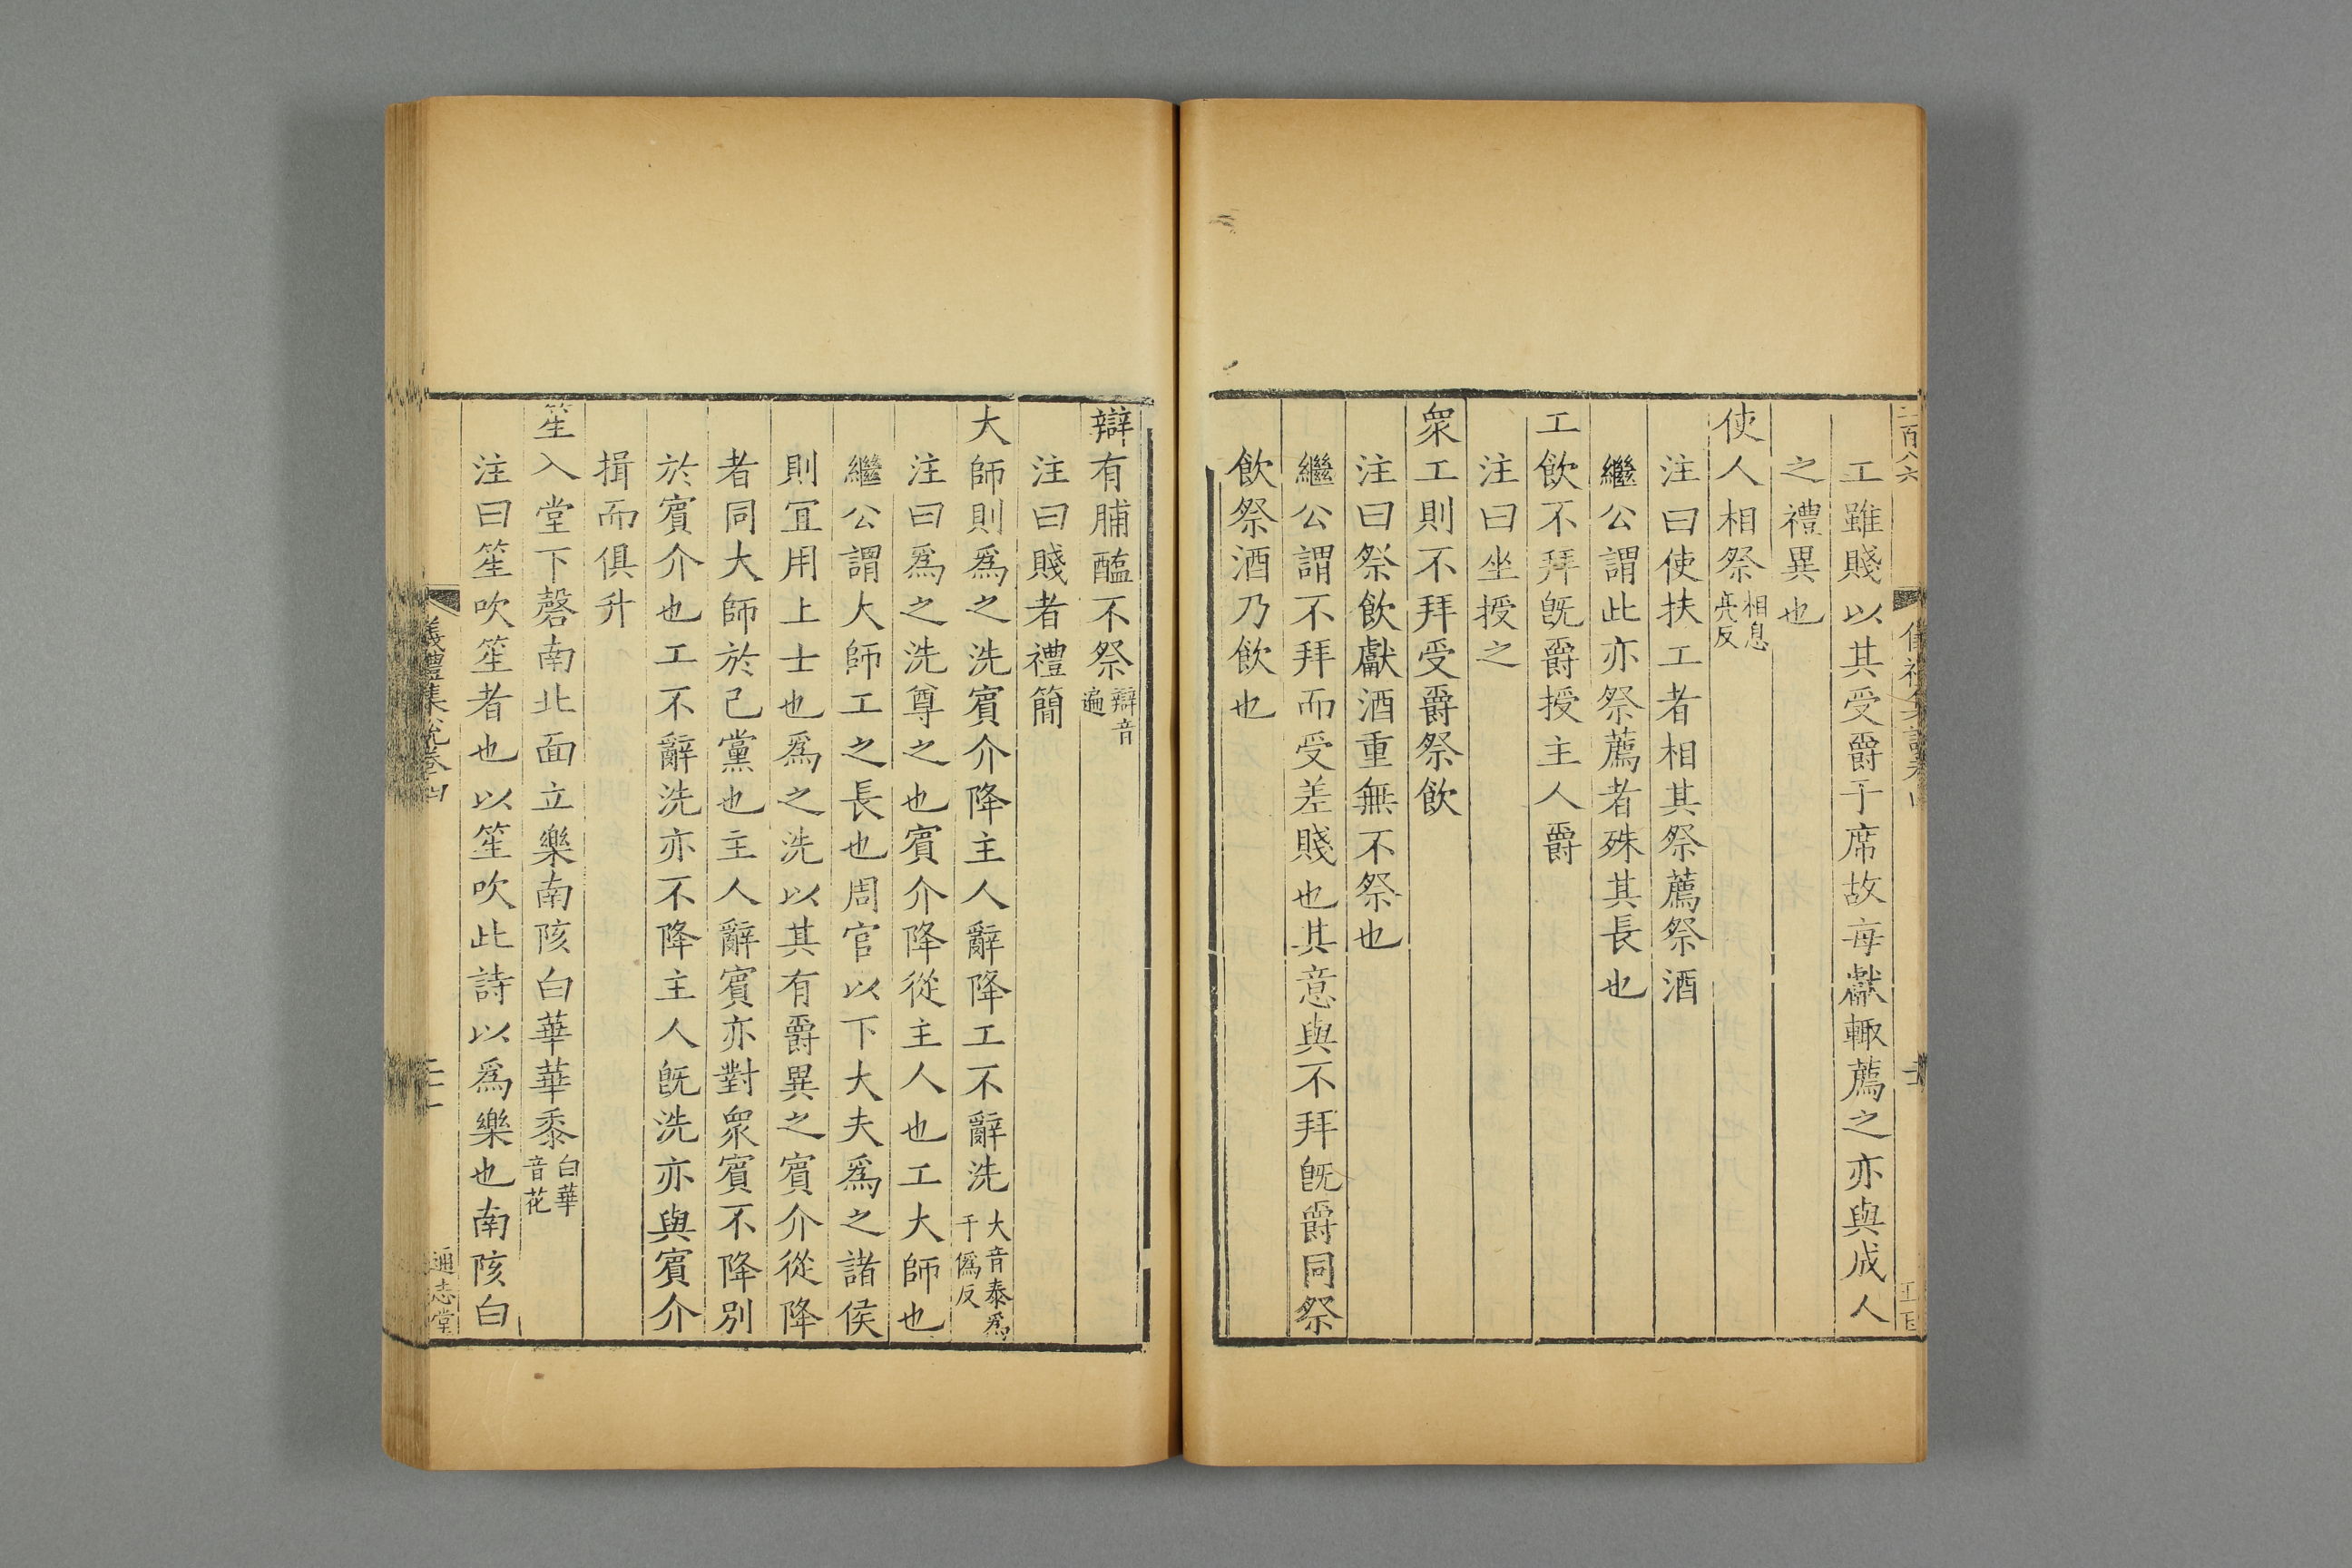 工雖賤以其受爵于席故每獻輒薦之亦與成人
之禮異也
使人相祭相息亮反
注曰使扶工者相其祭薦祭酒
繼公謂此亦祭薦者殊其長也
工飲不拜旣爵授主人爵
注曰坐授之
衆工則不拜受爵祭飲
注曰祭飲獻酒重無不祭也
繼公謂不拜而受差賤也其意與不拜旣爵同祭
飲祭酒乃飲也
辯有脯醢不祭辯音遍
注曰賤者禮簡
大師則爲之洗賓介降主人辭降工不辭洗大音泰爲于僞反
注曰爲之洗尊之也賓介降從主人也工大師也
繼公謂大師工之長也周官以下大夫爲之諸侯
則冝用上士也爲之洗以其有爵異之賓介從降
者同大師於己黨也主人辭賓亦對衆賓不降別
於賓介也工不辭洗亦不降主人旣洗亦與賓介
揖而俱升
笙入堂下磬南北面立樂南陔白華華黍白華音花
注曰笙吹笙者也以笙吹此詩以爲樂也南陔白
儀禮集說卷四
二十一
通志堂